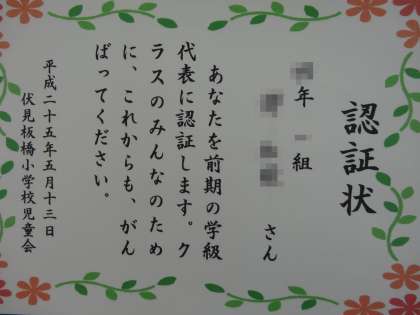 認証状
年 組
さん
あなたを前期の学級
代表に認証します。ク
ラスのみんなのため
に、これからも、がん
ばってください。
平成二十五年五月十三日
伏見板橋小学校児童会